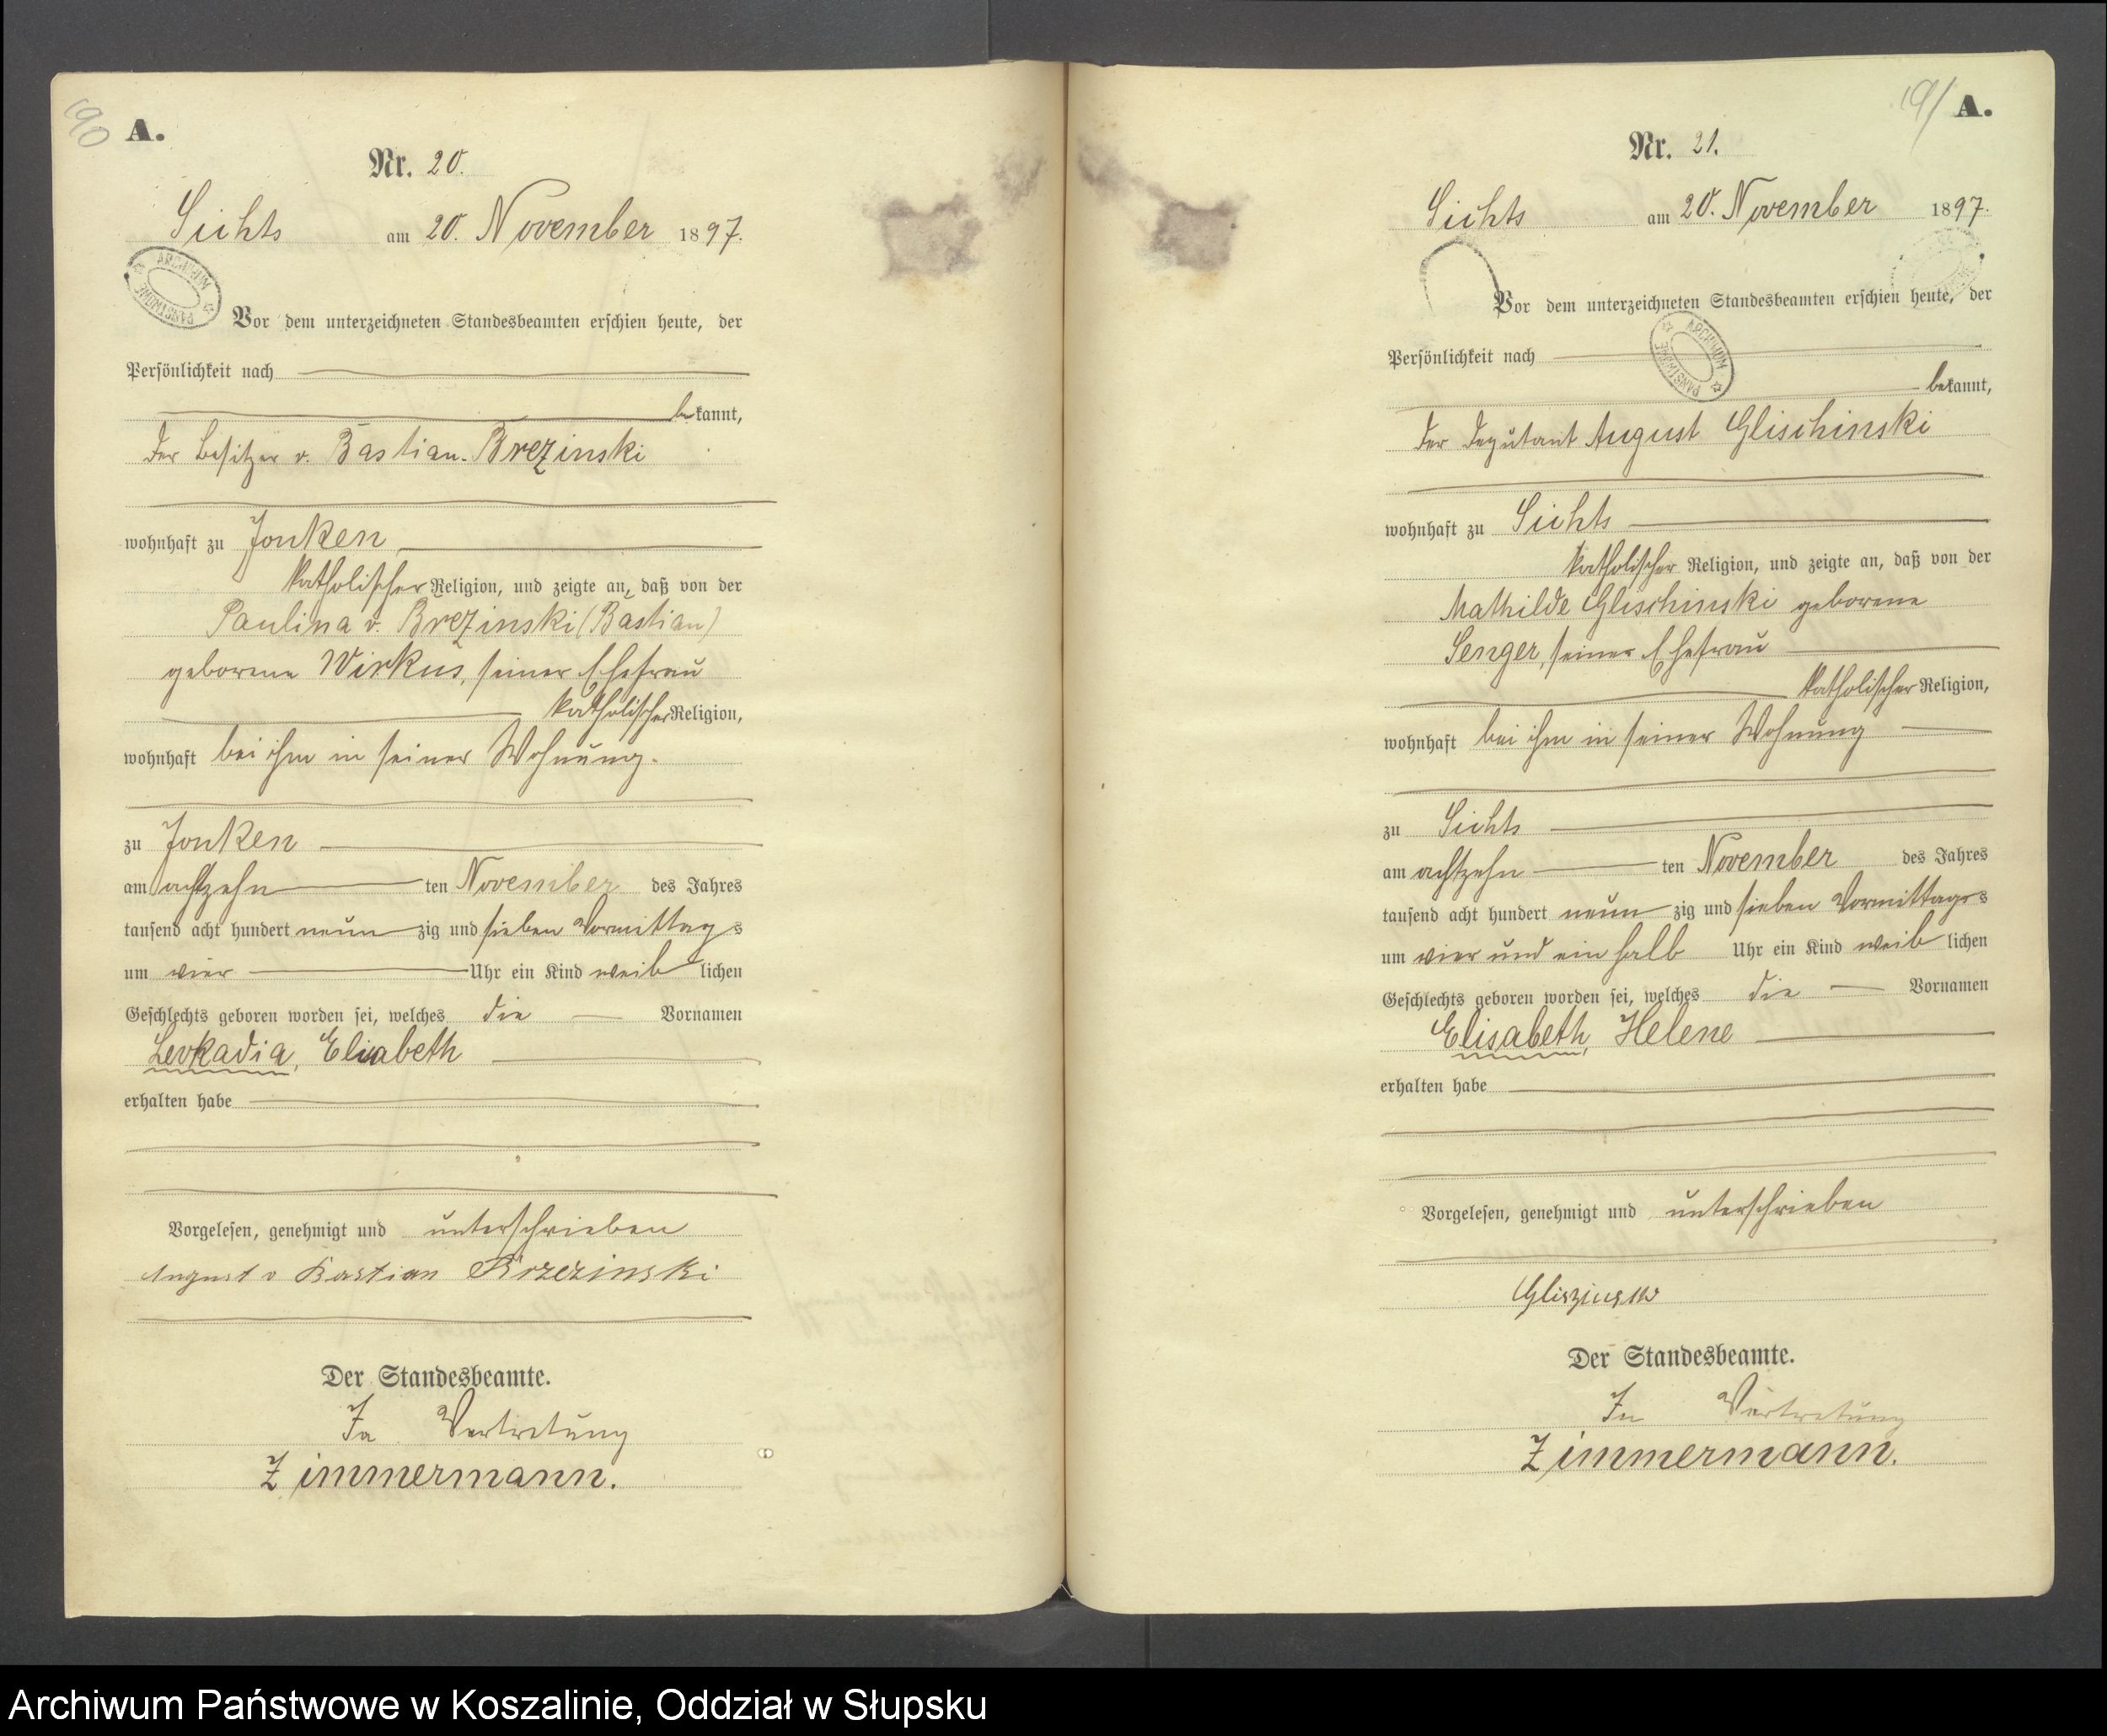 190
A.
Nr. 20.
Sichts am 20. November 1897.
ARCHIWUM PAŃSTWOWE
Vor dem unterzeichneten Standesbeamten erschien heute, der
Persönlichkeit nach
bekannt,
der Besitzer v. Bastian-Brezinski
wohnhaft zu Jonken
katholischer Religion, und zeigte an, daß von der
Paulina v. Brezinski (Bastian)
geborene Wirkus, seiner Ehefrau
katholischer Religion,
wohnhaft bei ihm in seiner Wohnung.
zu Jonken
am achtzehn ten November des Jahres
tausend acht hundert neun zig und sieben Vormittags
um vier Uhr ein Kind weiblichen
Geschlechts geboren worden sei, welches die Vornamen
Leokadia, Elisabeth
erhalten habe
Vorgelesen, genehmigt und unterschrieben
August v Bastian Brzezinski
Der Standesbeamte.
In Vertretung
Zimmermann.
191 A.
Nr. 21.
Sichts am 20. November 1897.
Vor dem unterzeichneten Standesbeamten erschien heute, der
Persönlichkeit nach
ARCHIWUM PAŃSTWOWE
bekannt,
der Deputant August Glischinski
wohnhaft zu Sichts
katholischer Religion, und zeigte an, daß von der
Mathilde Glischinski geborene
Senger, seiner Ehefrau
katholischer Religion,
wohnhaft bei ihm in seiner Wohnung
zu Sichts
am achtzehn ten November des Jahres
tausend acht hundert neun zig und sieben Vormittags
um vier und ein halb Uhr ein Kind weiblichen
Geschlechts geboren worden sei, welches die Vornamen
Elisabeth, Helene
erhalten habe
Vorgelesen, genehmigt und unterschrieben
Gliszinski
Der Standesbeamte.
In Vertretung
Zimmermann.
Archiwum Państwowe w Koszalinie, Oddział w Słupsku